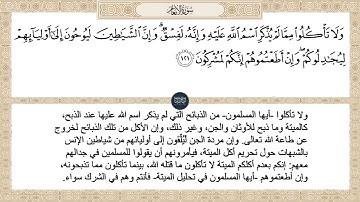 سورة الأنعام
وَلَا تَأْكُلُوا۟ مِمَّا لَمْ يُذْكَرِ ٱسْمُ ٱللَّهِ عَلَيْهِ وَإِنَّهُۥ لَفِسْقٌ ۗ وَإِنَّ ٱلشَّيَٰطِينَ لَيُوحُونَ إِلَىٰٓ أَوْلِيَآئِهِمْ
لِيُجَٰدِلُوكُمْ ۖ وَإِنْ أَطَعْتُمُوهُمْ إِنَّكُمْ لَمُشْرِكُونَ ١٢١
ولا تأكلوا -أيها المسلمون- من الذبائح التي لم يذكر اسم الله عليها عند الذبح،
كالميتة وما ذبح للأوثان والجن، وغير ذلك، وإن الأكل من تلك الذبائح لخروج
عن طاعة الله تعالى. وإن مردة الجن ليُلْقون إلى أوليائهم من شياطين الإنس
بالشبهات حول تحريم أكل الميتة، فيأمرونهم أن يقولوا للمسلمين في جدالهم
معهم: إنكم بعدم أكلكم الميتة لا تأكلون ما قتله الله، بينما تأكلون مما تذبحونه،
وإن أطعتموهم -أيها المسلمون في تحليل الميتة- فأنتم وهم في الشرك سواء.